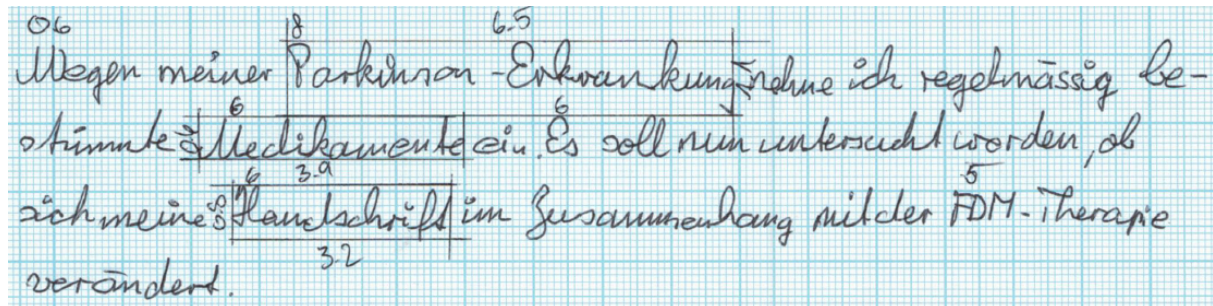 06 8 6.5
Wegen meiner Parkinson-Erkrankung nehme ich regelmässig be-
6 6
stimmte Medikamente ein. Es soll nun untersucht worden, ob
6 3.9 5
sich meine Handschrift im Zusammenhang mit der FDM-Therapie
3.2
verändert.